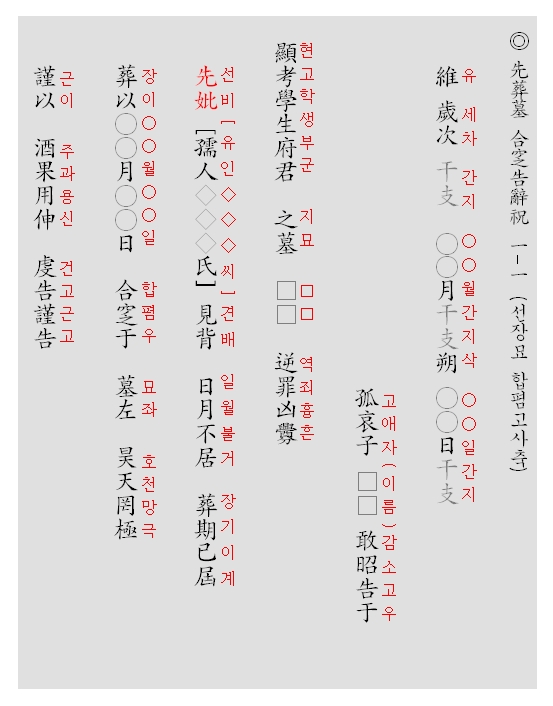 ◎ 先葬墓 合窆告辭祝 一-一 (선장묘 합폄고사축)
維 歲次 干支 ○○月干支朔 ○○日干支
유 세차 간지 ○○월간지삭 ○○일간지
孤哀子 □□ 敢昭告于
고애자(이름)감소고우
顯考學生府君 之墓 □□ 逆罪凶釁
현고학생부군 지묘 □□ 역죄흉흔
先妣[孺人◇◇◇氏] 見背 日月不居 葬期已屆
선비[유인◇◇◇씨]견배 일월불거 장기이계
葬以○○月○○日 合窆于 墓左 昊天罔極
장이○○월○○일 합폄우 묘좌 호천망극
謹以 酒果用伸 虔告謹告
근이 주과용신 건고근고